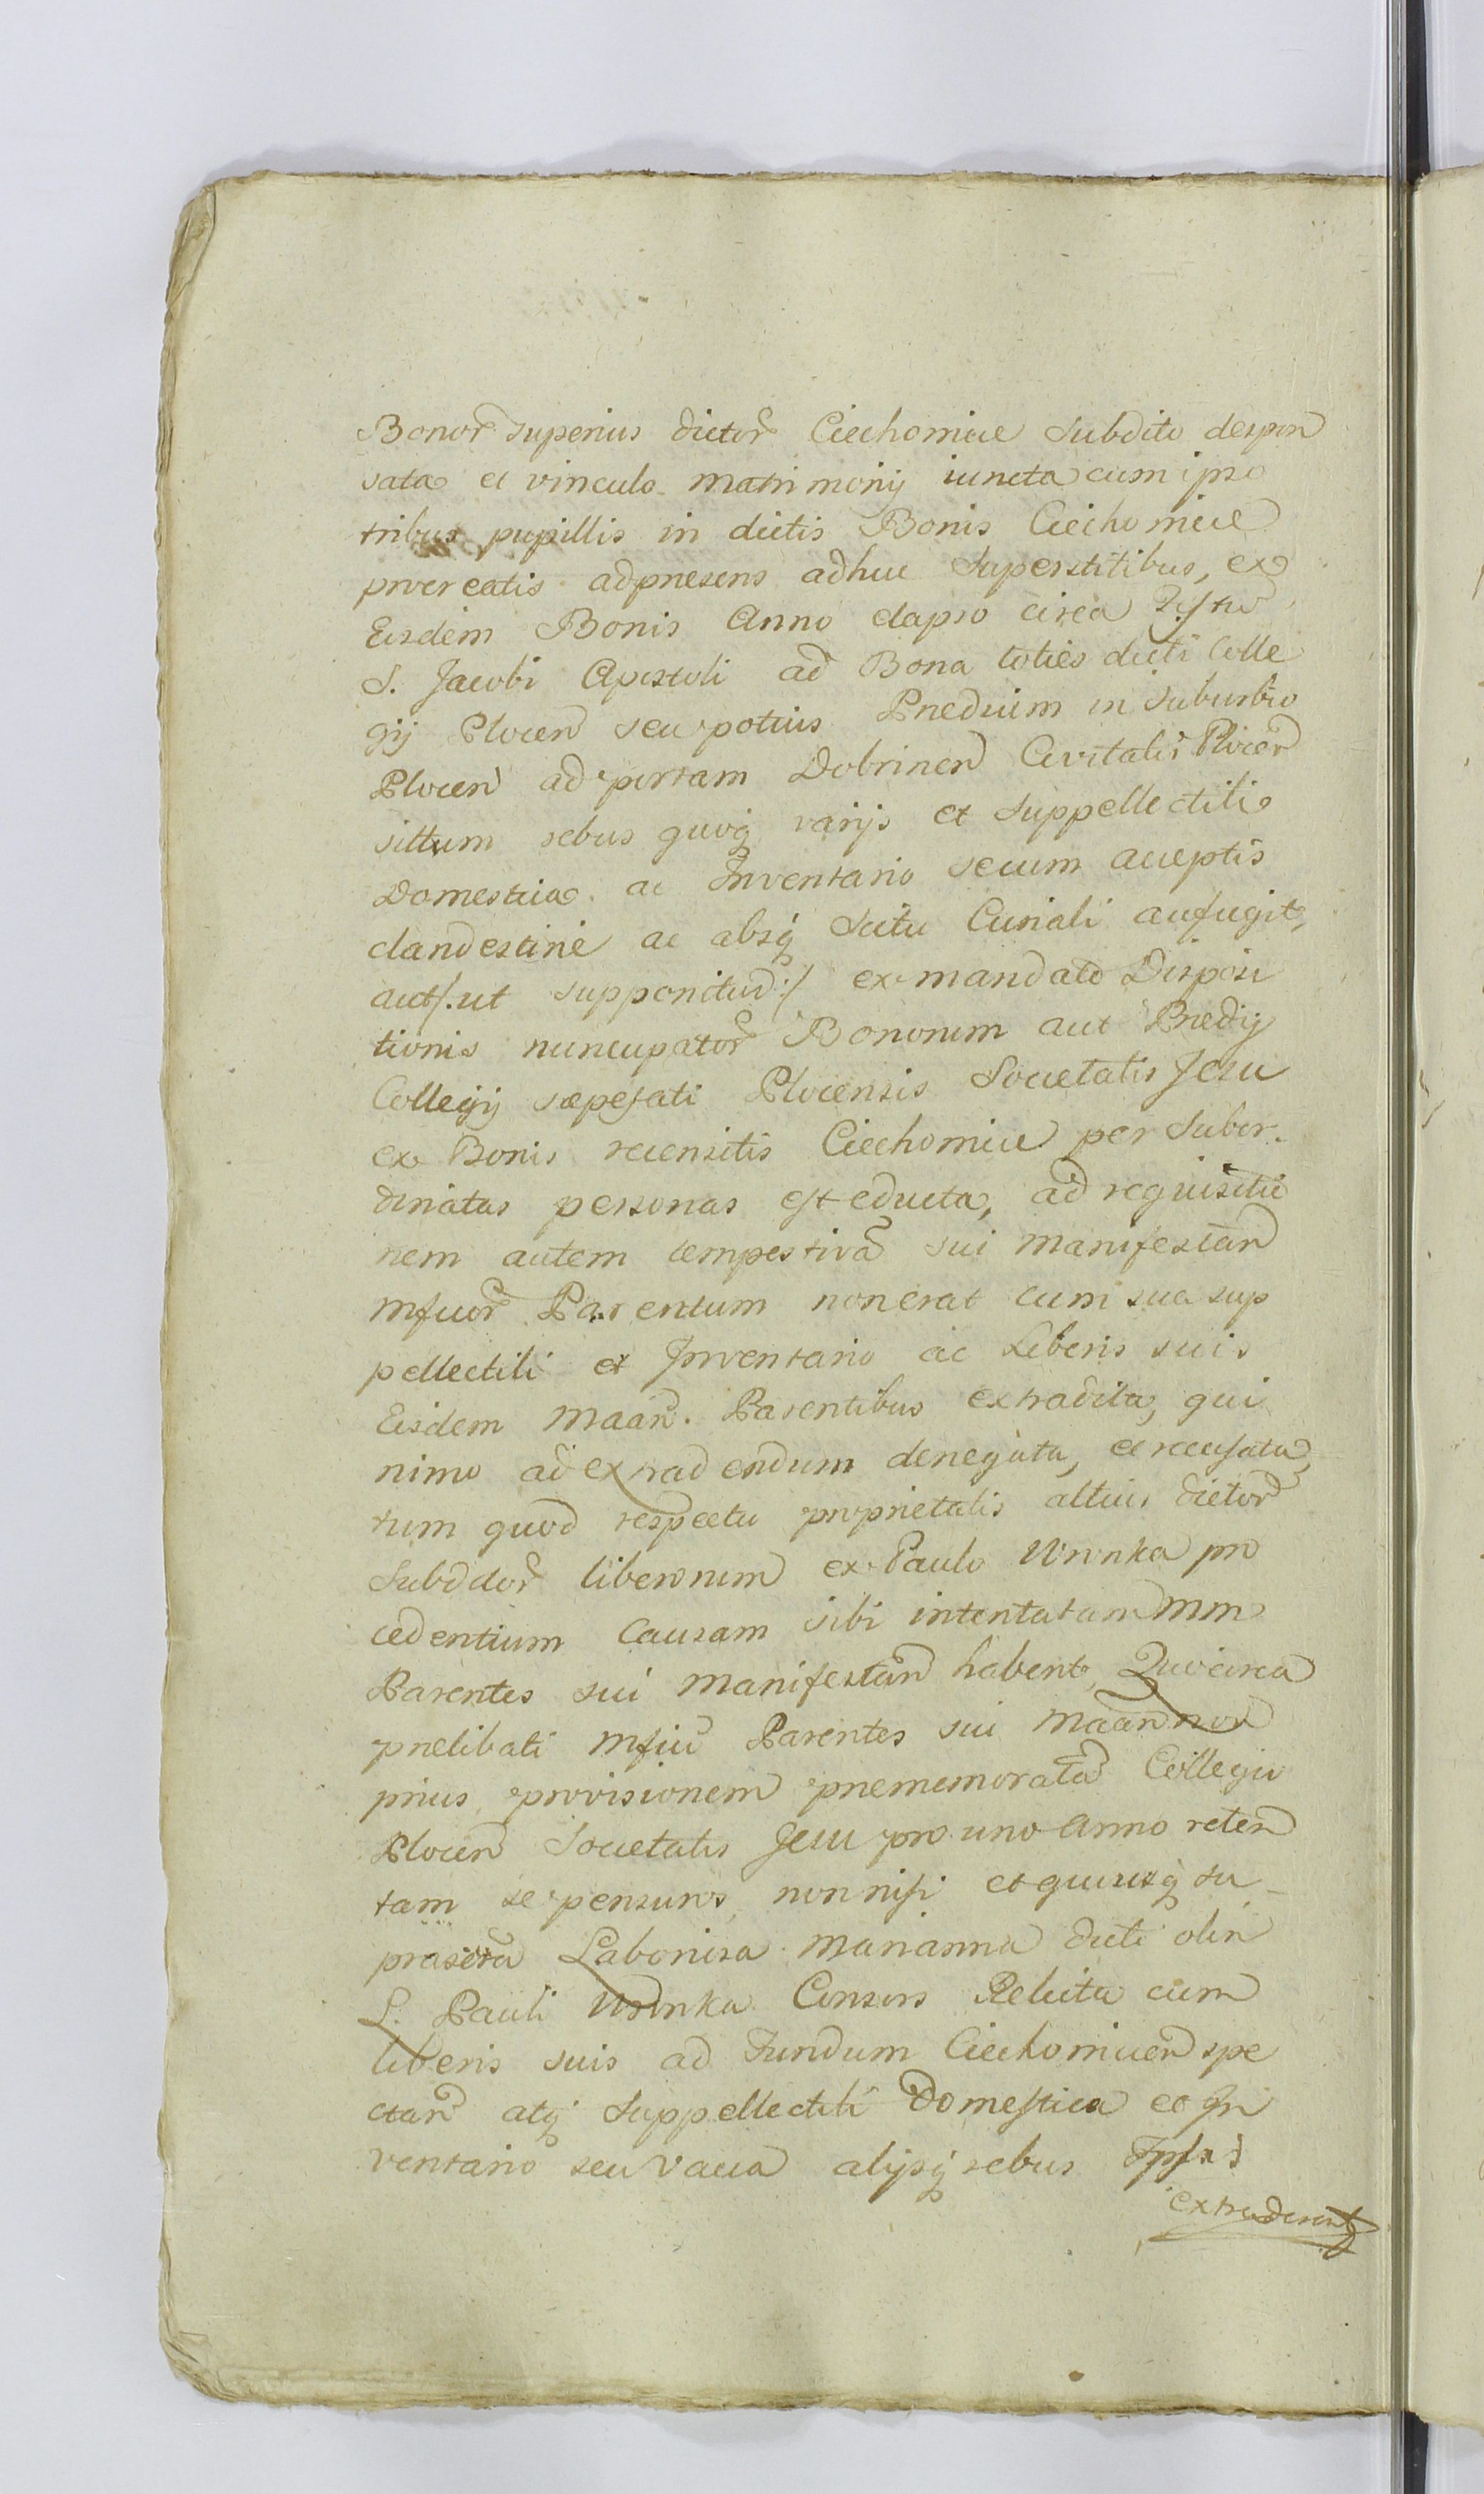 Bonor superius dictor Ciechomice Subdito despon
sata et vinculo matrimonij iuncta cum ipso
tribus pupillis in dictis Bonis Ciechomice
procreatis adpræsens adhuc Superstitibus, ex
Eisdem Bonis Anno elapso circa Festu
S. Jacobi Apostoli ad Bona toties dicti Colle
gij Plocen seu potius Prædium in Suburbio
Plocen ad portam Dobrinen Civitatis Plocen
sittum rebus quoq varijs et Suppellectili
Domestica ac Inventario secum acceptis
clandestine ac absq Scitu Curiali aufugit,
aut /: ut supponitur :/ ex mandato Disposi
tionis nuncupator Bonorum aut Prædij
Collegij sæpefati Plocensis Societatis Jesu
ex Bonis recensitis Ciechomice per Subor-
dinatas personas est educta, ad requisitio
nem autem tempestiva sui manifestan
Mfcor Parentum non erat cum sua sup
pellectili et Inventario ac Liberis suis
Eisdem Maan. Parentibus extradita, qui
nimo ad extradendum denegata, et recusata,
tum quod respectu proprietatis altius dictor
Subddor liberorum ex Paulo Wronka pro
cedentium Causam sibi intentatam MM
Parentes sui Manifestan habent, Quocirca
prælibati Mfici Parentes sui Maan non
prius provisionem præmemorata Collegio
Plocen Societatis Jesu pro uno Anno reten
tam se pensuros, non nisi et quousq su
prascta Laboriosa Marianna dicti olim
L. Pauli Wronka Consors Relicta cum
liberis suis ad Fundum Ciechomicen spe
ctan atq Suppellectili Domestica et In
ventario seu Vacca alijsq rebus Ipsis
extraderent